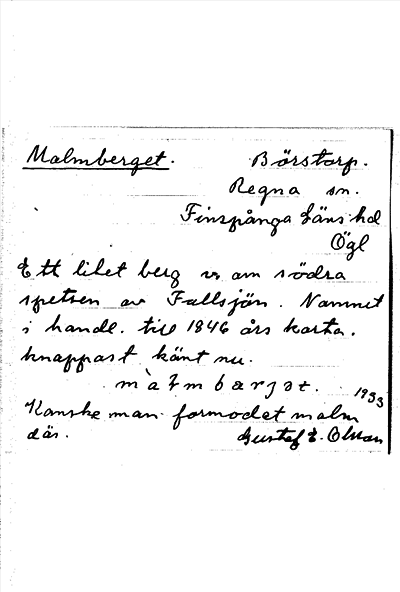 Malmberget. Börstorp.
Regna sn.
Finspånga läns hd
Ögl
Ett litet berg v. om södra
spetsen av Fallsjön. Namnet
i handl. till 1846 års karta.
knappast känt nu.
màłmbarjət.
1933
Kanske man förmodet malm
där. Gustaf E. Olsson